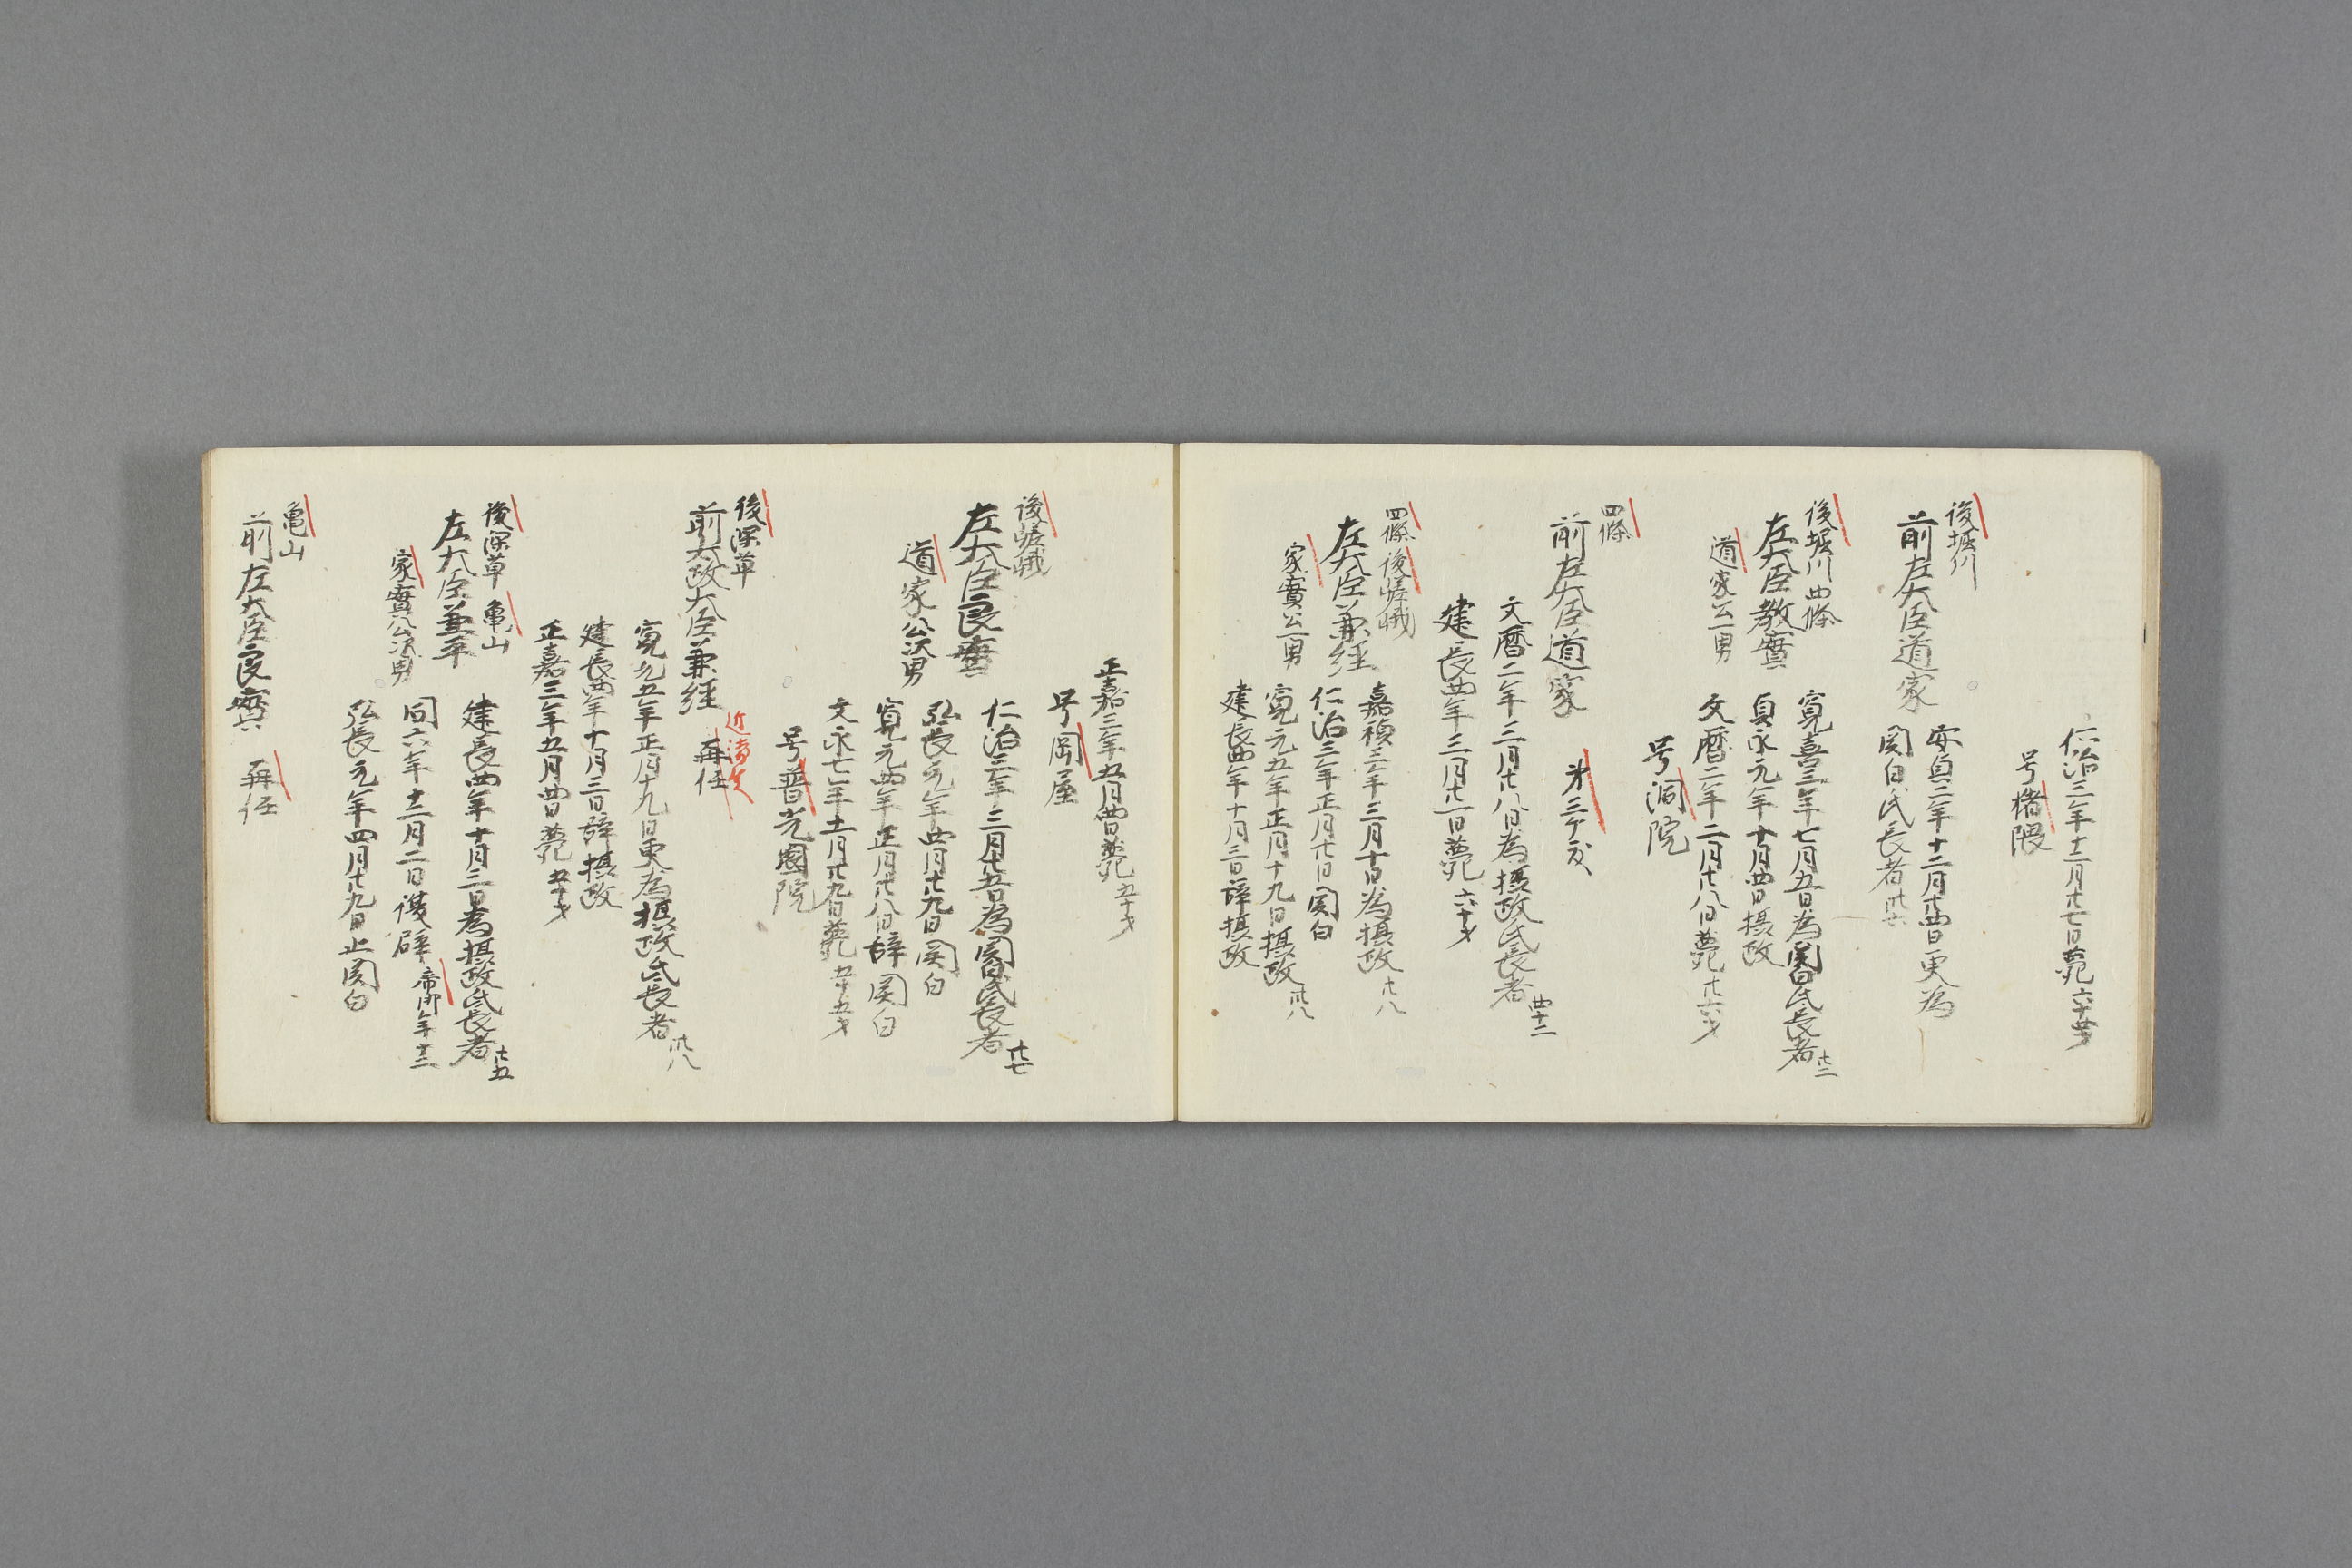 仁治三年十二月廿七日薨 六十四才
号猪隈
後堀川
前左大臣道家
安貞二年十二月廿四日更為
関白氏長者 卅六
後堀川 四條
左大臣教實
道家公一男
寛喜三年七月五日為関白氏長者 廿二
貞永元年十月四日摂政
文暦二年三月廿八日薨 廿六才
号洞院
四條
前左大臣道家 第三ケ度
文暦二年三月廿八日為摂政氏長者 四十二
建長四年二月廿一日薨 六十才
四條 後嵯峨
左大臣兼経
家實公一男
嘉禎三年三月十日為摂政 廿八
仁治三年正月廿日関白
寛元五年正月十九日摂政 卅八
建長四年十月三日辞摂政
正嘉三年五月四日薨 五十才
号岡屋
後嵯峨
左大臣良實
道家公次男
仁治三年三月廿五日為関白氏長者 廿七
弘長元年四月廿九日関白
寛元四年正月廿八日辞関白
文永七年十一月廿九日薨 五十五才
号普光園院
後深草
前太政大臣兼経 再任
寛元五年正月十九日更為摂政氏長者 卅八
建長四年十月三日辞摂政
正嘉三年五月四日薨 五十才
後深草 亀山
左大臣兼平
家實公次男
建長四年十月三日為摂政氏長者 廿五
同六年十二月二日復辟 帝御年十二
弘長元年四月廿九日止関白
亀山
前左大臣良實 再任